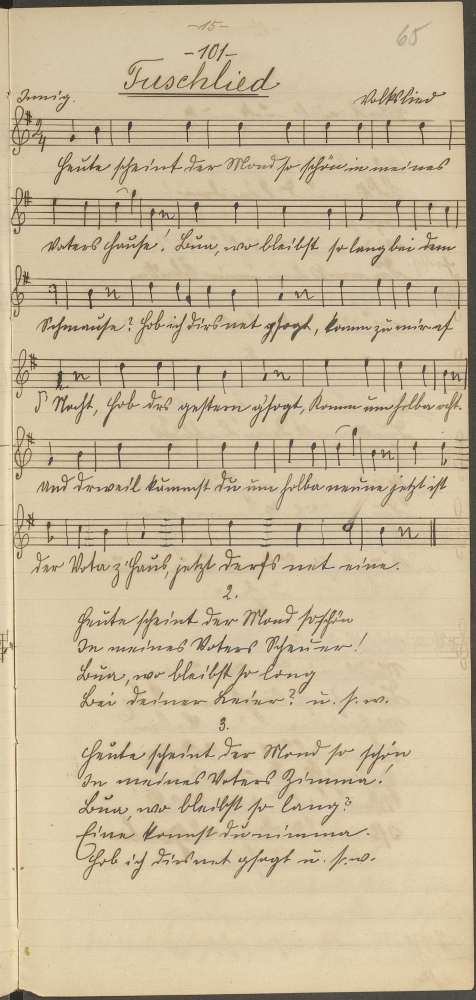 -15-
65
-101-
Tuschlied
Innig.
Volkslied
Heute scheint der Mond so schön in meines
Vaters Hause! Bua, wo bleibst so lang bei dem
Schmause? Hob ich dirs net gsogt, komm zu mir af
d' Nacht, hob drs gestern g'sogt, Komm um holba ocht.
Und drweil kummst du um holba neune jetzt ist
der Vota z' Haus, jetzt derfs net eine.
2.
Heute scheint der Mond so schön
In meines Vaters Scheuer!
Bua, wo bleibst so lang
Bei deiner Leier? u. s. w.
3.
Heute scheint der Mond so schön
In meines Vaters Zimma!
Bua, wo bleibst so lang?
Eine kommst du nimma.
Hob ich dirs net gsogt u. s. w.